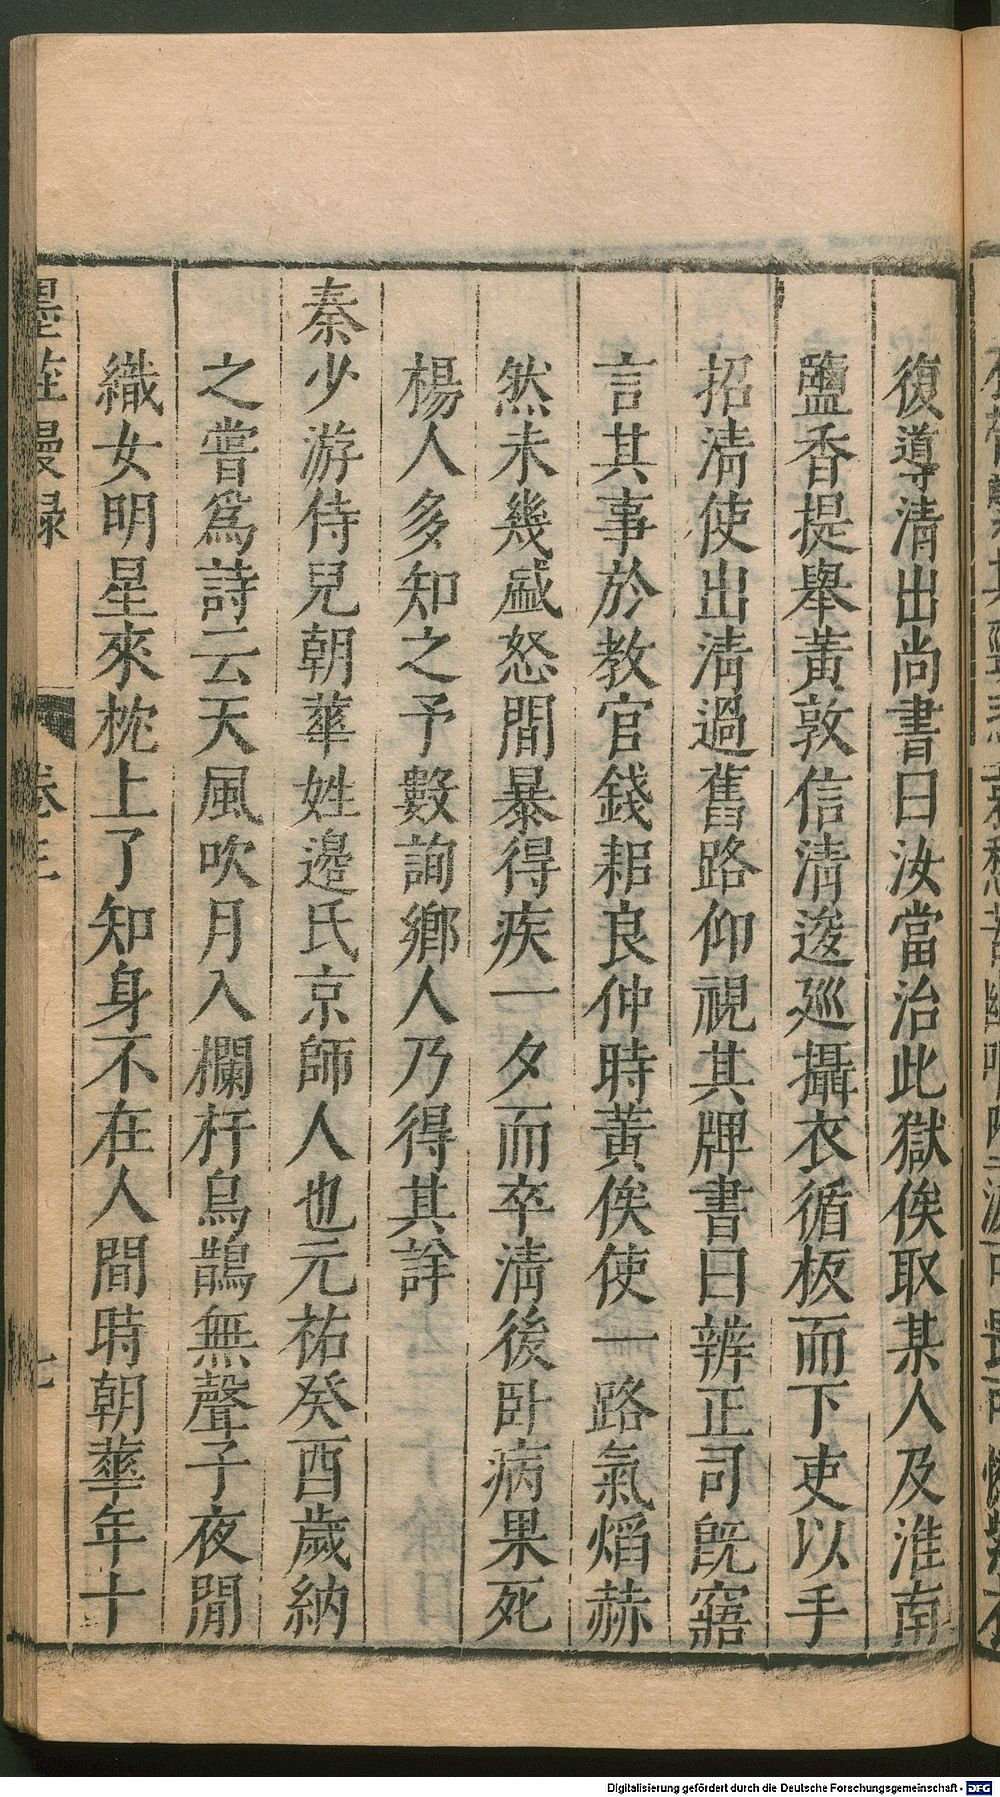 復導清出尚書曰汝當治此獄俟取某人及淮南
鹽香提舉黃敦信清逡巡攝衣循板而下吏以手
招清使出清過舊路仰視其牌書曰辨正司旣寤
言其事於教官錢耜良仲時黃俟使一路氣熖赫
然未幾盛怒間暴得疾一夕而卒清後卧病果死
楊人多知之予數詢鄉人乃得其詳
秦少游侍兒朝華姓邉氏京師人也元祐癸酉歲納
之嘗爲詩云天風吹月入欄杆烏鵲無聲子夜閒
織女明星來枕上了知身不在人間時朝華年十
墨莊漫録 卷三 七
Digitalisierung gefördert durch die Deutsche Forschungsgemeinschaft - DFG